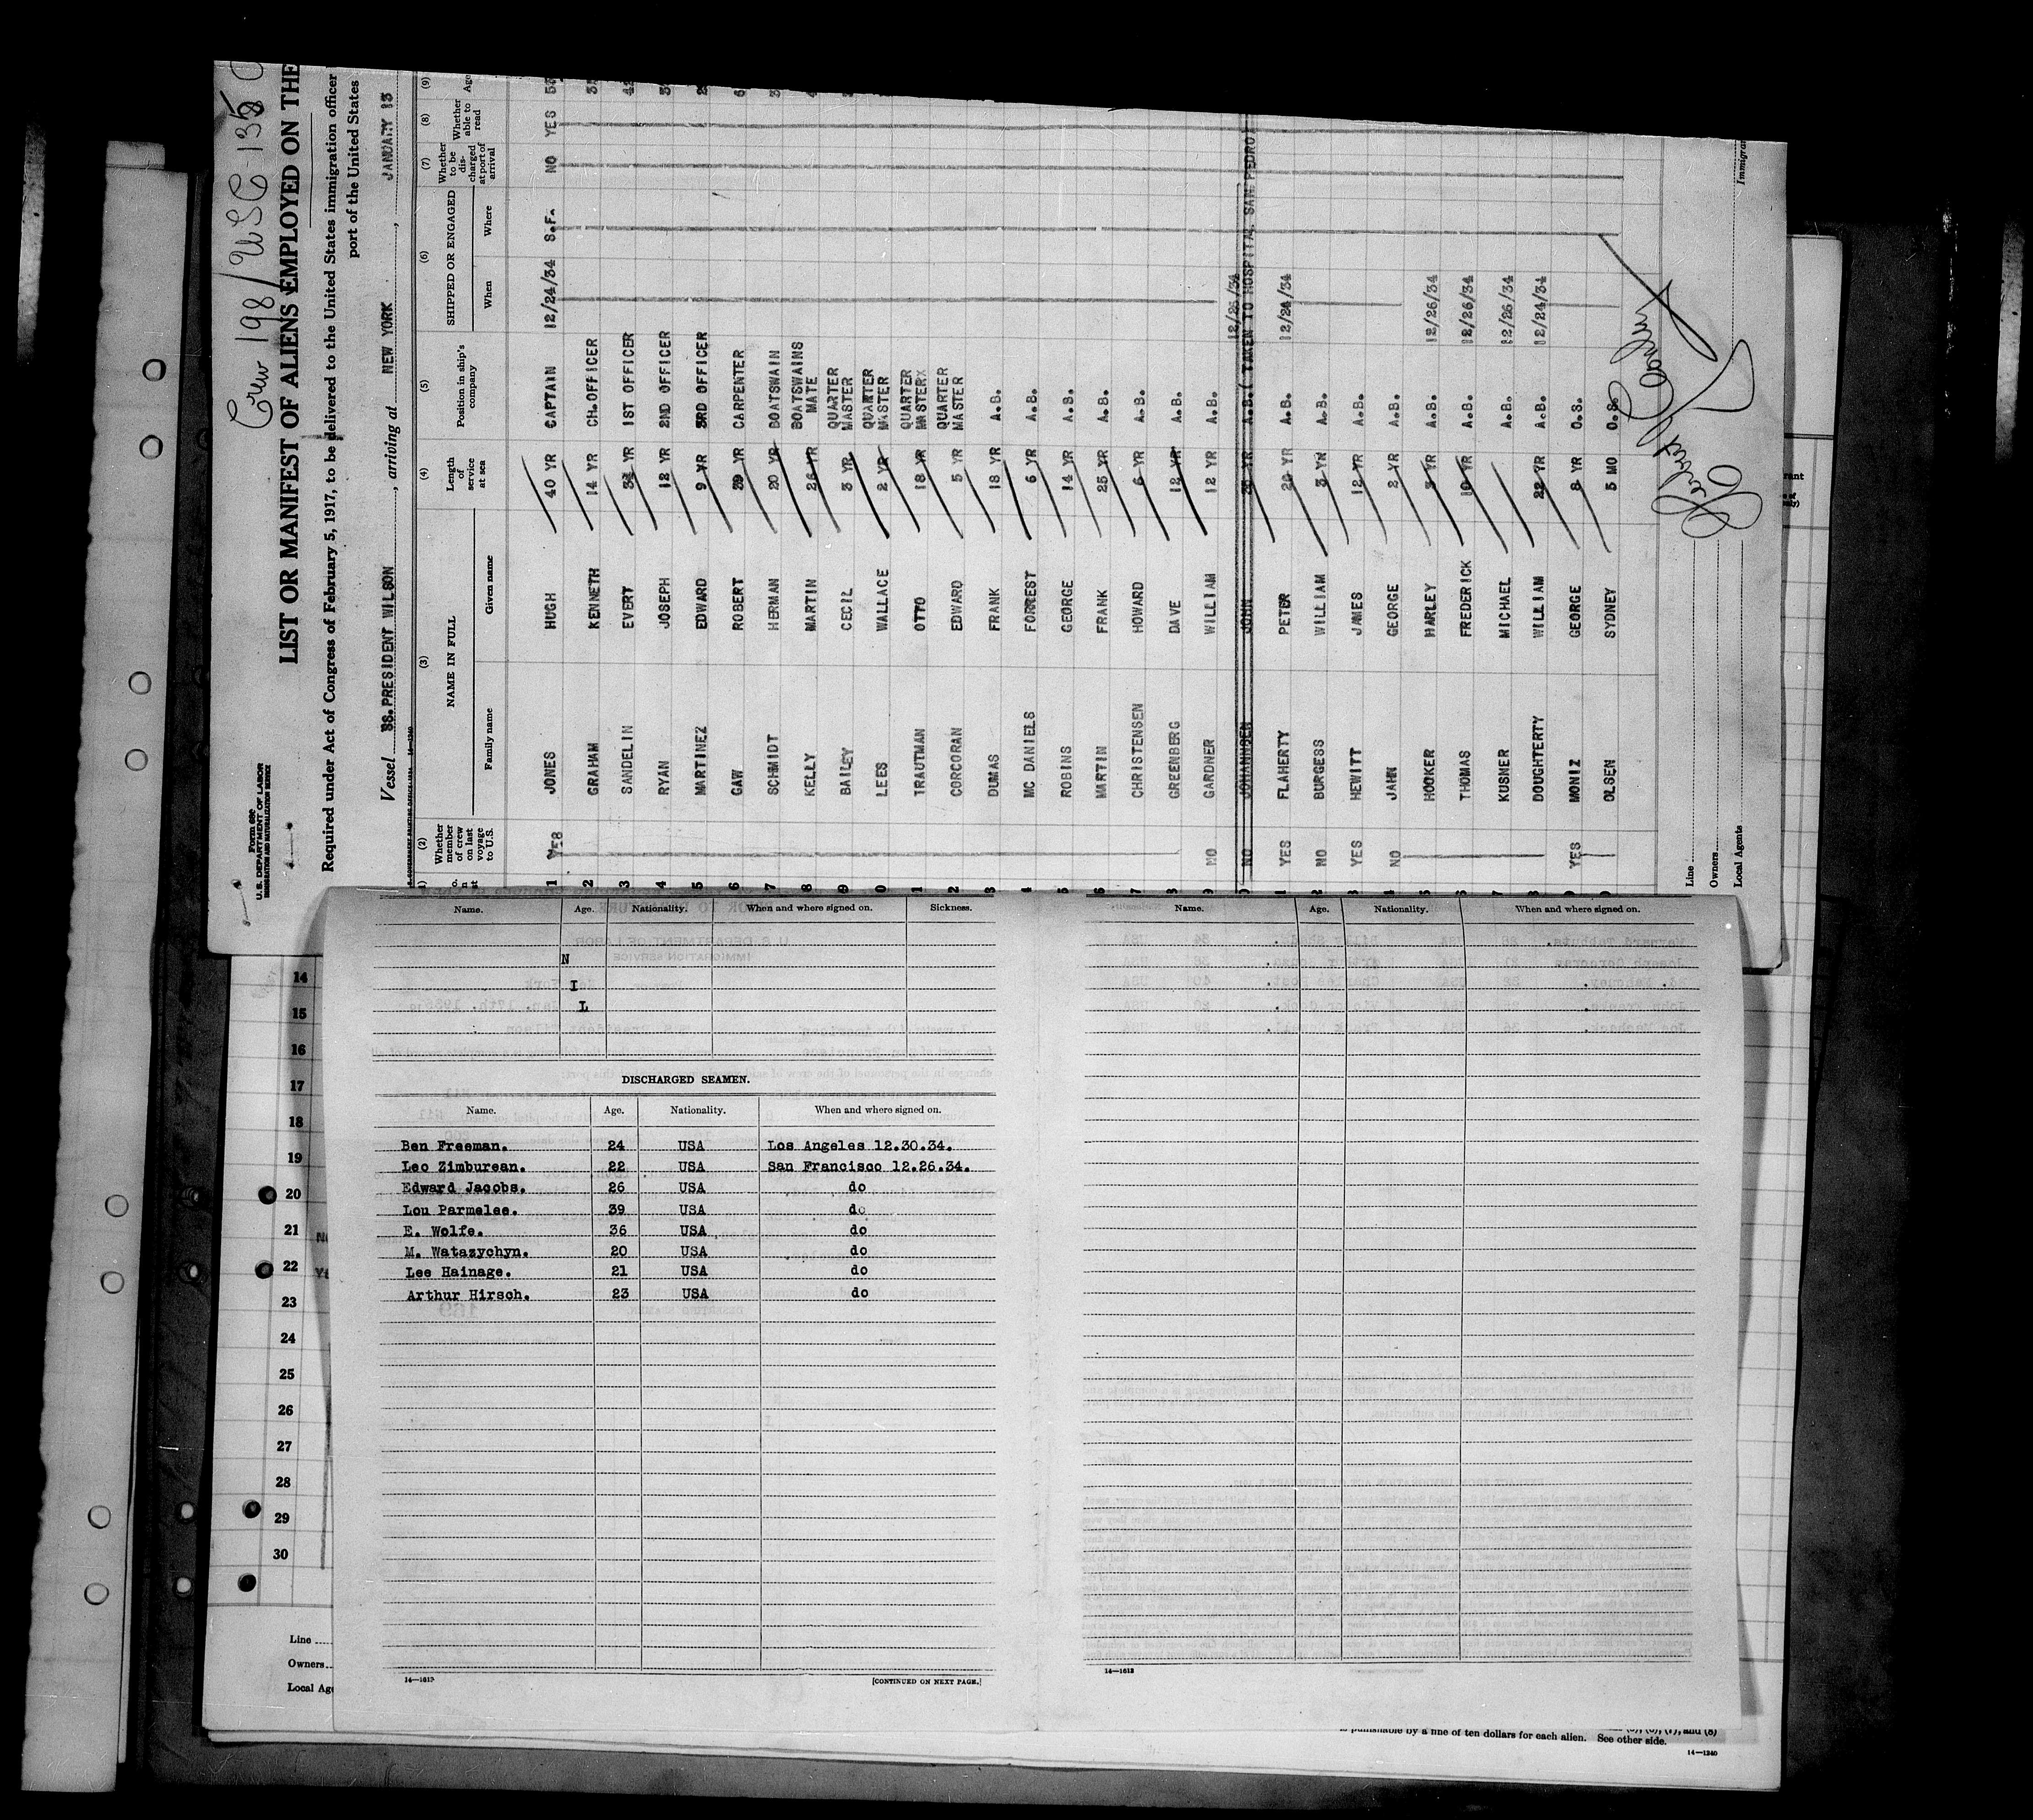 Crew 198/USC-135
Form 680
U. S. DEPARTMENT OF LABOR
IMMIGRATION AND NATURALIZATION SERVICE
LIST OR MANIFEST OF ALIENS EMPLOYED ON THE
Required under Act of Congress of February 5, 1917, to be delivered to the United States immigration officer
port of the United States
Vessel SS. PRESIDENT WILSON , arriving at NEW YORK , JANUARY 13
(2) (3) (4) (5) (6) (7) (8) (9)
Whether member of crew on last voyage to U.S. NAME IN FULL Family name Given name Length of service at sea Position in ship's company SHIPPED OR ENGAGED When Where Whether to be discharged at port of arrival Whether able to read Age
1 YES JONES HUGH 40 YR CAPTAIN 12/24/34 S.F. NO YES
2 GRAHAM KENNETH 14 YR CH.OFFICER
3 SANDELIN EVERT 34 YR 1ST OFFICER
4 RYAN JOSEPH 12 YR 2ND OFFICER
5 MARTINEZ EDWARD 9 YR 3RD OFFICER
6 GAW ROBERT 39 YR CARPENTER
7 SCHMIDT HERMAN 20 YR BOATSWAIN
8 KELLY MARTIN 26 YR BOATSWAINS MATE
9 BAILEY CECIL 3 YR QUARTER MASTER
0 LEES WALLACE 2 YR QUARTER MASTER
1 TRAUTMAN OTTO 18 YR QUARTER MASTERX
2 CORCORAN EDWARD 5 YR QUARTER MASTER
3 DUMAS FRANK 18 YR A.B.
4 MC DANIELS FORREST 6 YR A.B.
5 ROBINS GEORGE 14 YR A.B.
6 MARTIN FRANK 25 YR A.B.
7 CHRISTENSEN HOWARD 6 YR A.B.
8 GREENBERG DAVE 12 YR A.B.
9 NO GARDNER WILLIAM 12 YR A.B.
0 NO JOHANNSEN JOHN YR A.B.( TAKEN TO HOSPITAL SAN PEDRO) 12/26/34
1 YES FLAHERTY PETER YR A.B. 12/24/34
2 NO BURGESS WILLIAM 3 YR A.B.
3 YES HEWITT JAMES 12 YR A.B.
4 NO JAHN GEORGE 2 YR A.B.
5 HOOKER HARLEY 3 YR A.B. 12/26/34
6 THOMAS FREDERICK 10 YR A.B. 12/26/34
7 KUSNER MICHAEL A.B. 12/26/34
8 DOUGHTERTY WILLIAM 22 YR A.B. 12/24/34
9 YES MONIZ GEORGE 8 YR O.S.
0 OLSEN SYDNEY 5 MO O.S.
Line
Owners
Local Agents
Immigran
Name. Age. Nationality. When and where signed on. Sickness.
N
I
L
DISCHARGED SEAMEN.
Name. Age. Nationality. When and where signed on.
Ben Freeman. 24 USA Los Angeles 12.30.34.
Leo Zimburean. 22 USA San Francisco 12.26.34.
Edward Jacobs. 26 USA do
Lou Parmelee. 39 USA do
E. Wolfe. 36 USA do
M. Watazychyn. 20 USA do
Lee Hainage. 21 USA do
Arthur Hirsch. 23 USA do
14—1613
[CONTINUED ON NEXT PAGE.]
Name. Age. Nationality. When and where signed on.
14—1613
14
15
16
17
18
19
20
21
22
23
24
25
26
27
28
29
30
Line
Owners
Local Age
is punishable by a fine of ten dollars for each alien. See other side.
(7), and (8)
14—1240